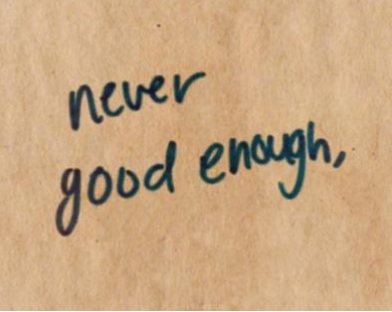 never
good enough,